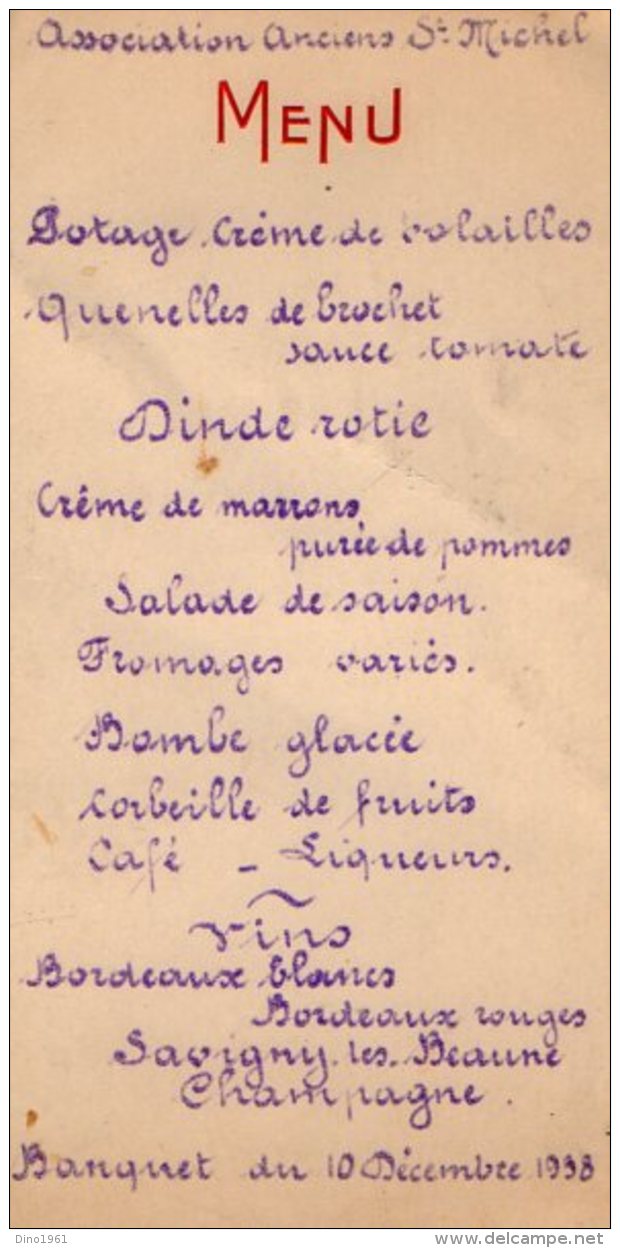 Association Anciens St Michel
MENU
Potage Crème de volailles
Quenelles de brochet
sauce tomate
Dinde rotie
Crême de marrons
purée de pommes
Salade de saison.
Fromages variés.
Bombe glacée
Corbeille de fruits
Café - Liqueurs.
Vins
Bordeaux blancs
Bordeaux rouges
Savigny-les-Beaune
Champagne.
Banquet du 10 Décembre 1938
Dino1961
www.delcampe.net